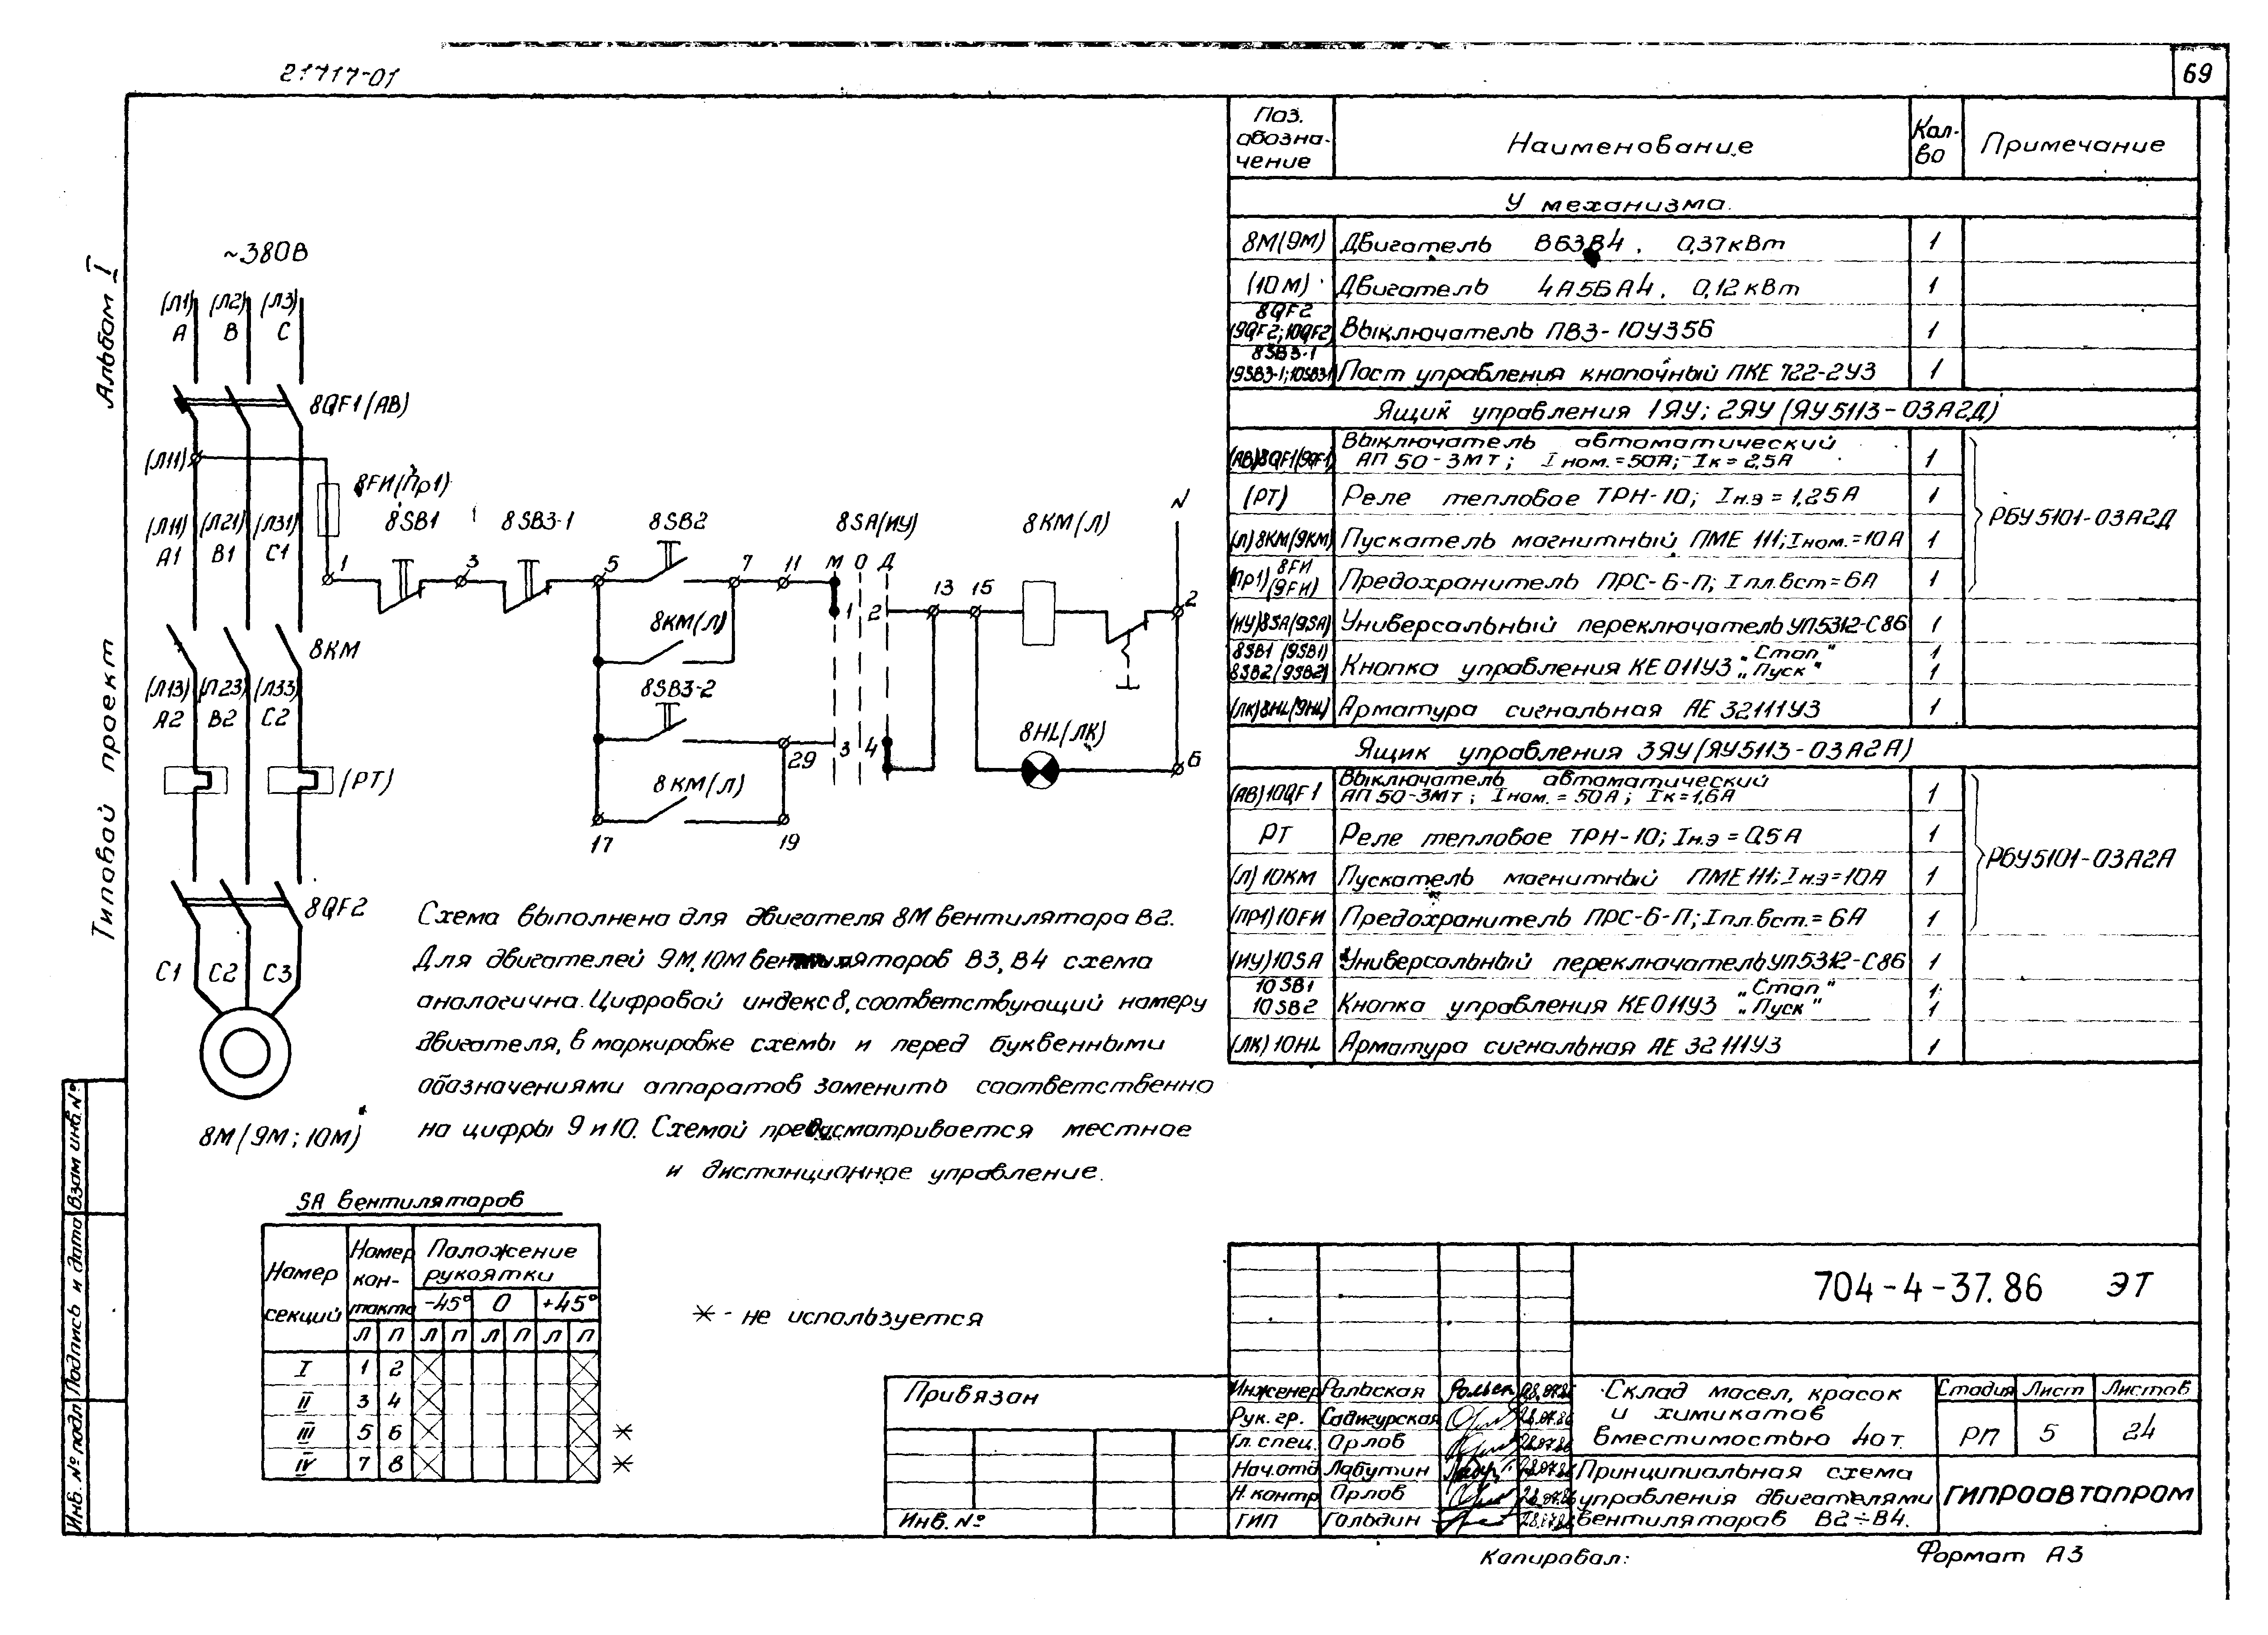 21717-01
69
Альбом I
Типовой проект
~380В
(Л1) (Л2) (Л3)
А В С
8QF1(АВ)
(Л11)
8FИ(Пр1)
(Л11) (Л21) (Л31)
А1 В1 С1
8SB1
8SB3-1
8SB2
8SA(ИУ)
8КМ(Л)
N
1 3 5 7 11 М О Д 13 15 2
1 2
8КМ(Л)
8SB3-2
3 4
29
8КМ(Л)
17 19
8HL(ЛК)
6
8КМ
(Л13) (Л23) (Л33)
А2 В2 С2
(РТ)
8QF2
С1 С2 С3
8М(9М; 10М)
Схема выполнена для двигателя 8М вентилятора В2.
Для двигателей 9М, 10М вентиляторов В3, В4 схема
аналогична. Цифровой индекс 8, соответствующий номеру
двигателя, в маркировке схемы и перед буквенными
обозначениями аппаратов заменить соответственно
на цифры 9 и 10. Схемой предусматривается местное
и дистанционное управление.
SA вентиляторов
Номер секций
Номер контакта
Положение рукоятки
-45° 0 +45°
Л П Л П Л П Л П
I 1 2
II 3 4
III 5 6 *
IV 7 8 *
* - не используется
Поз. обозначение Наименование Кол-во Примечание
У механизма.
8М(9М) Двигатель В63В4, 0,37кВт 1
(10М) Двигатель 4А56А4, 0,12кВт 1
8QF2
(9QF2;10QF2) Выключатель ПВ3-10У356 1
8SB3-1
(9SB3-1;10SB3-1) Пост управления кнопочный ПКЕ 722-2У3 1
Ящик управления 1ЯУ; 2ЯУ (ЯУ5113-03А2Д)
(АВ)8QF1(9QF1) Выключатель автоматический
АП 50-3МТ; Iном.=50А; Iк=2,5А 1
(РТ) Реле тепловое ТРН-10; Iн.э=1,25А 1
РБУ5101-03А2Д
(Л)8КМ(9КМ) Пускатель магнитный ПМЕ 111; Iном.=10А 1
(Пр1) 8FИ (9FИ) Предохранитель ПРС-6-П; Iпл.вст=6А 1
(ИУ)8SA(9SA) Универсальный переключатель УП5312-С86 1
8SB1 (9SB1) „Стоп" 1
8SB2(9SB2) Кнопка управления КЕ011У3 „Пуск" 1
(ЛК)8HL(9HL) Арматура сигнальная АЕ 32111У3 1
Ящик управления 3ЯУ(ЯУ5113-03А2А)
(АВ)10QF1 Выключатель автоматический
АП 50-3МТ; Iном.=50А; Iк=1,6А 1
РТ Реле тепловое ТРН-10; Iн.э=0,5А 1
РБУ5101-03А2А
(Л)10КМ Пускатель магнитный ПМЕ 111; Iн.э=10А 1
(ПР1)10FИ Предохранитель ПРС-6-П; Iпл.вст.=6А 1
(ИУ)10SA Универсальный переключатель УП5312-С86 1
10SB1 „Стоп" 1
10SB2 Кнопка управления КЕ011У3 „Пуск" 1
(ЛК)10HL Арматура сигнальная АЕ 32111У3 1
704-4-37.86 ЭТ
Привязан
Инв. №
Инженер Ральская 28.07.86
Рук. гр. Садигурская 28.07.86
Гл. спец. Орлов 28.07.86
Нач.отд Лабутин 28.07.86
Н. контр Орлов 28.07.86
ГИП Гольдин 28.07.86
Склад масел, красок
и химикатов
вместимостью 40т.
Стадия Лист Листов
РП 5 24
Принципиальная схема
управления двигателями
вентиляторов В2÷В4.
ГИПРОАВТОПРОМ
Копировал:
Формат А3
Инв. № подл Подпись и дата Взам инв. №